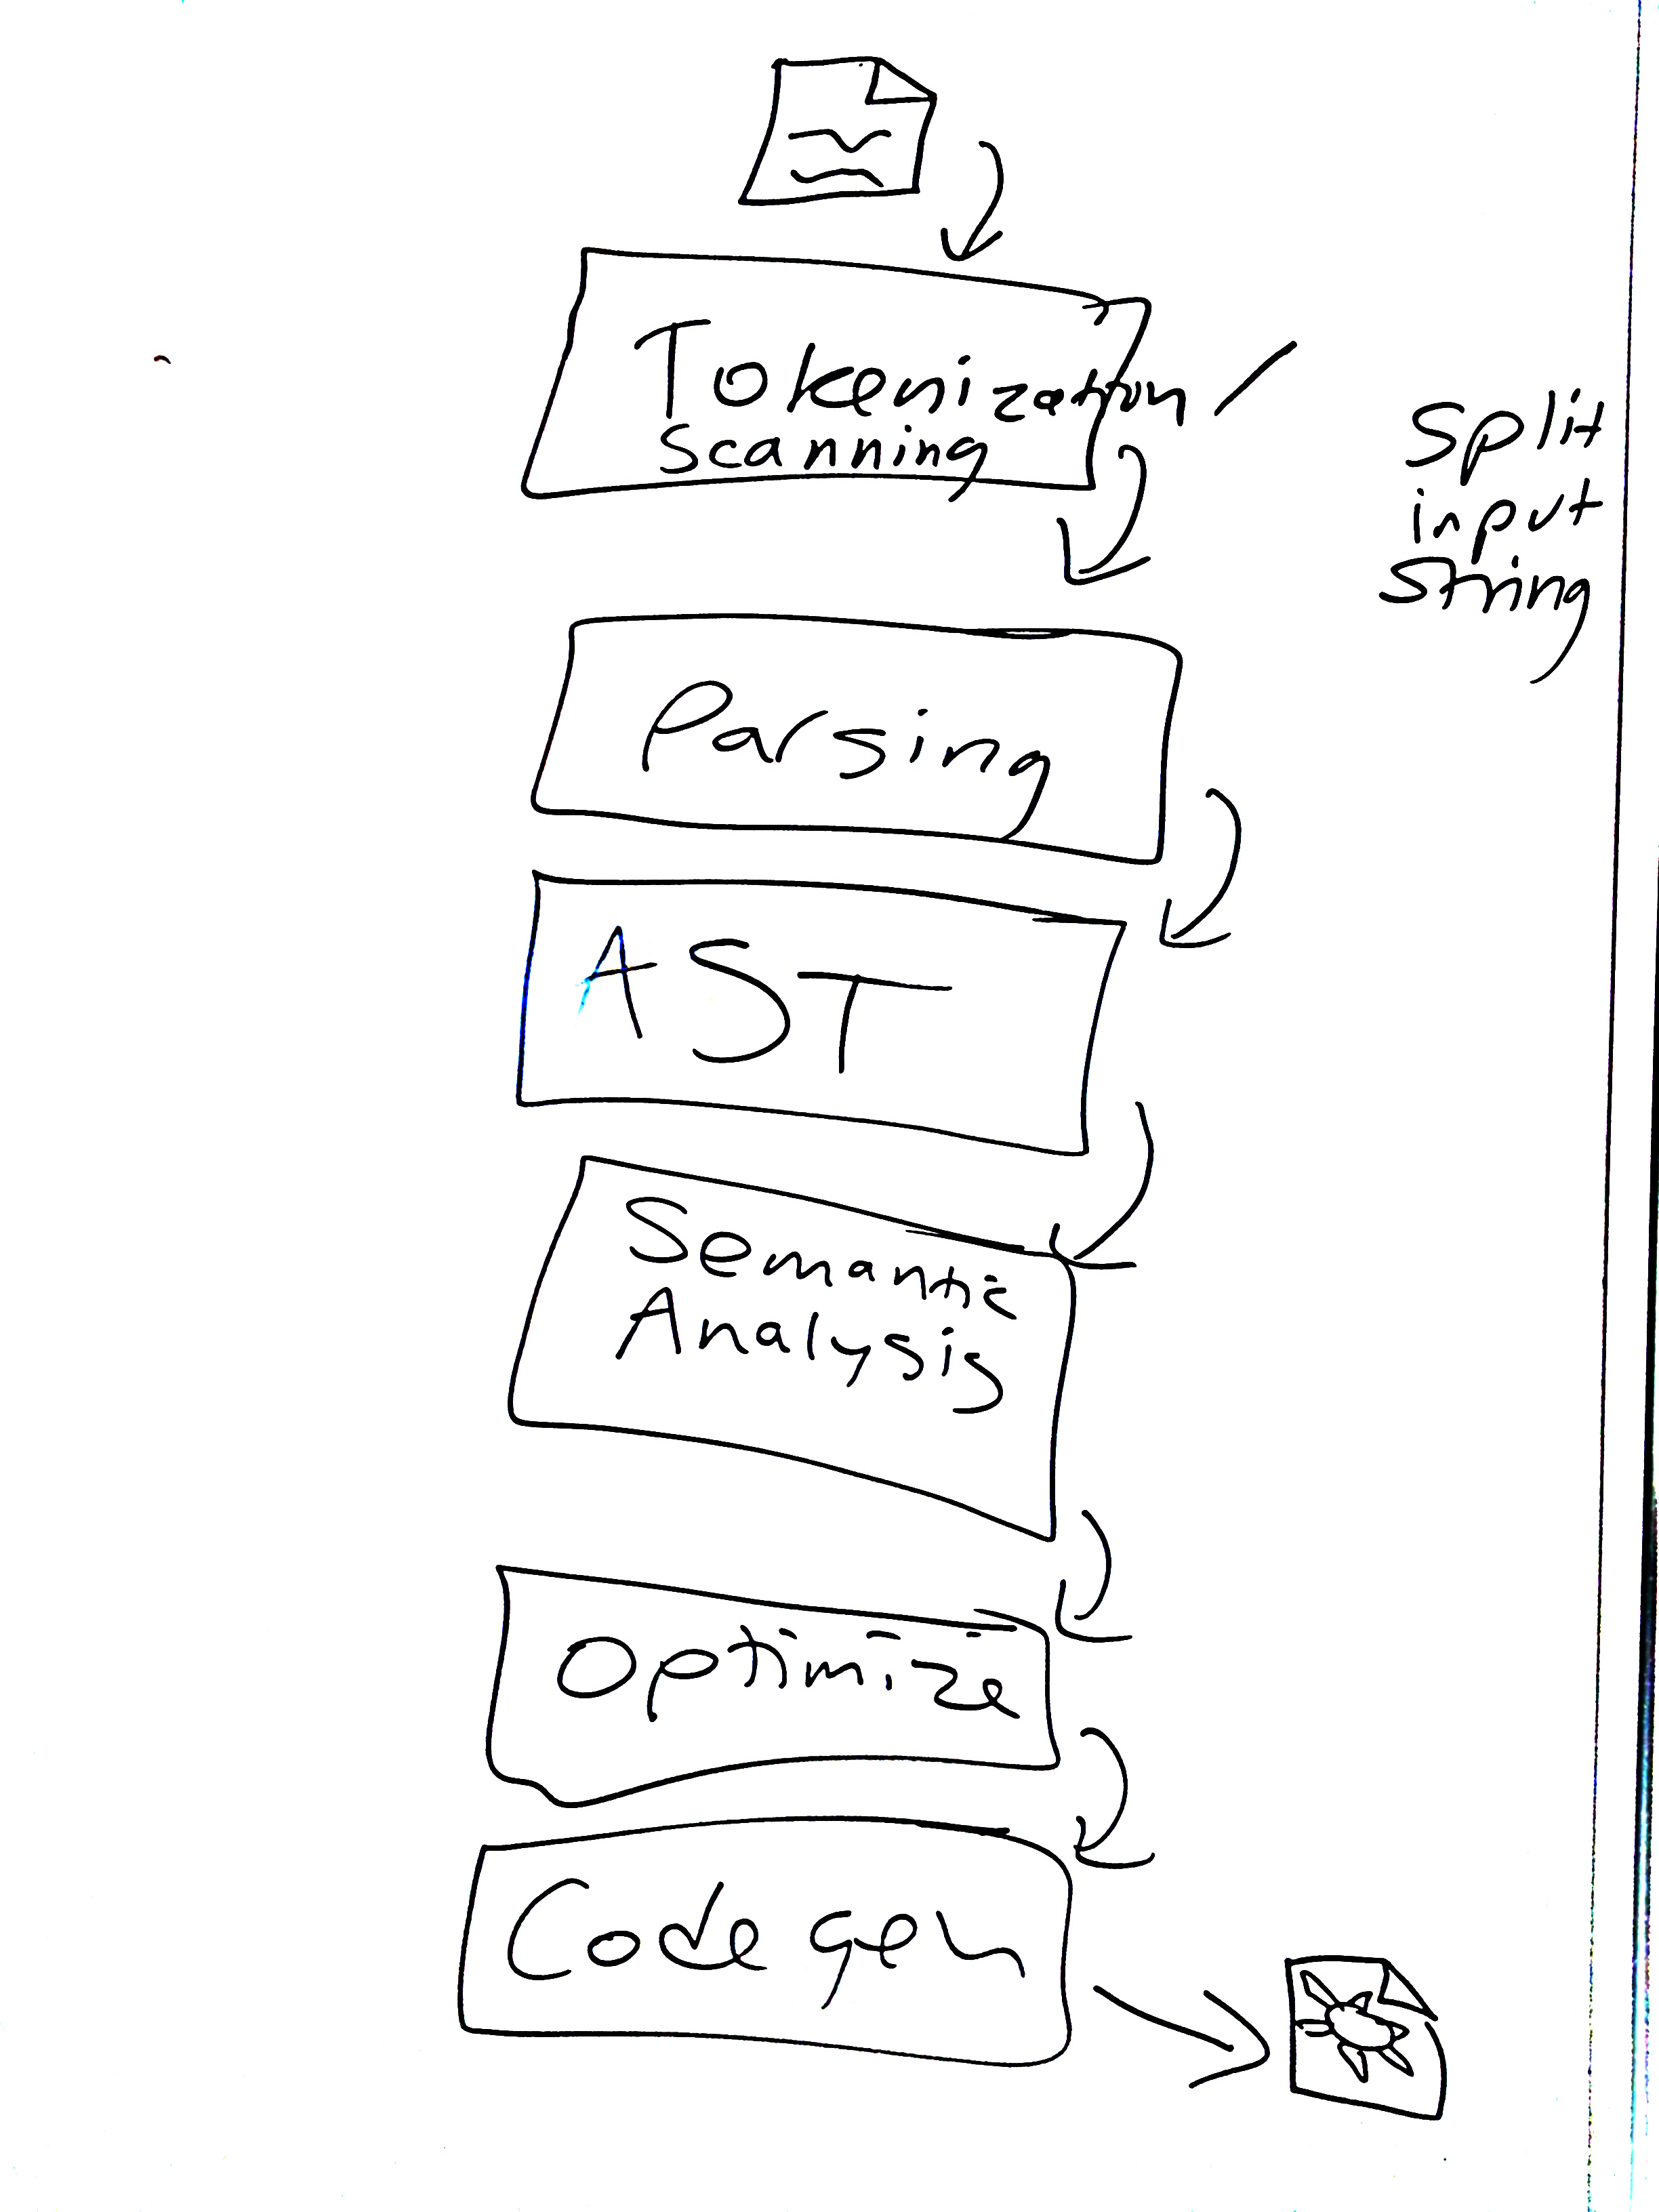 Tokenization/
Scanning
Split
input
String
Parsing
AST
Semantic
Analysis
Optimize
Code gen